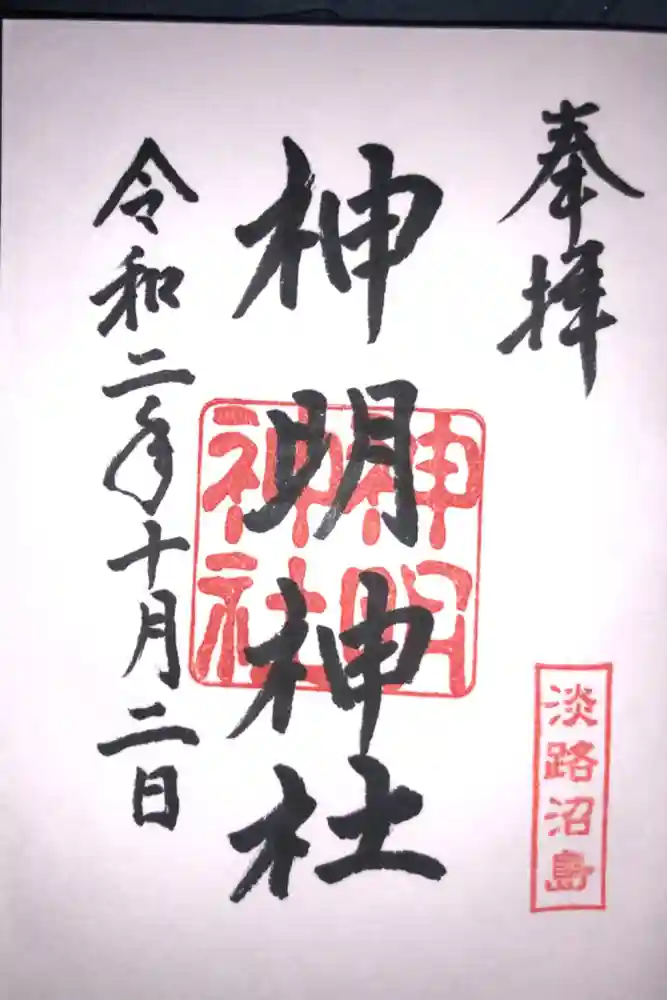 奉拝
神明神社
神明
神社
令和二年十月二日
淡路沼島